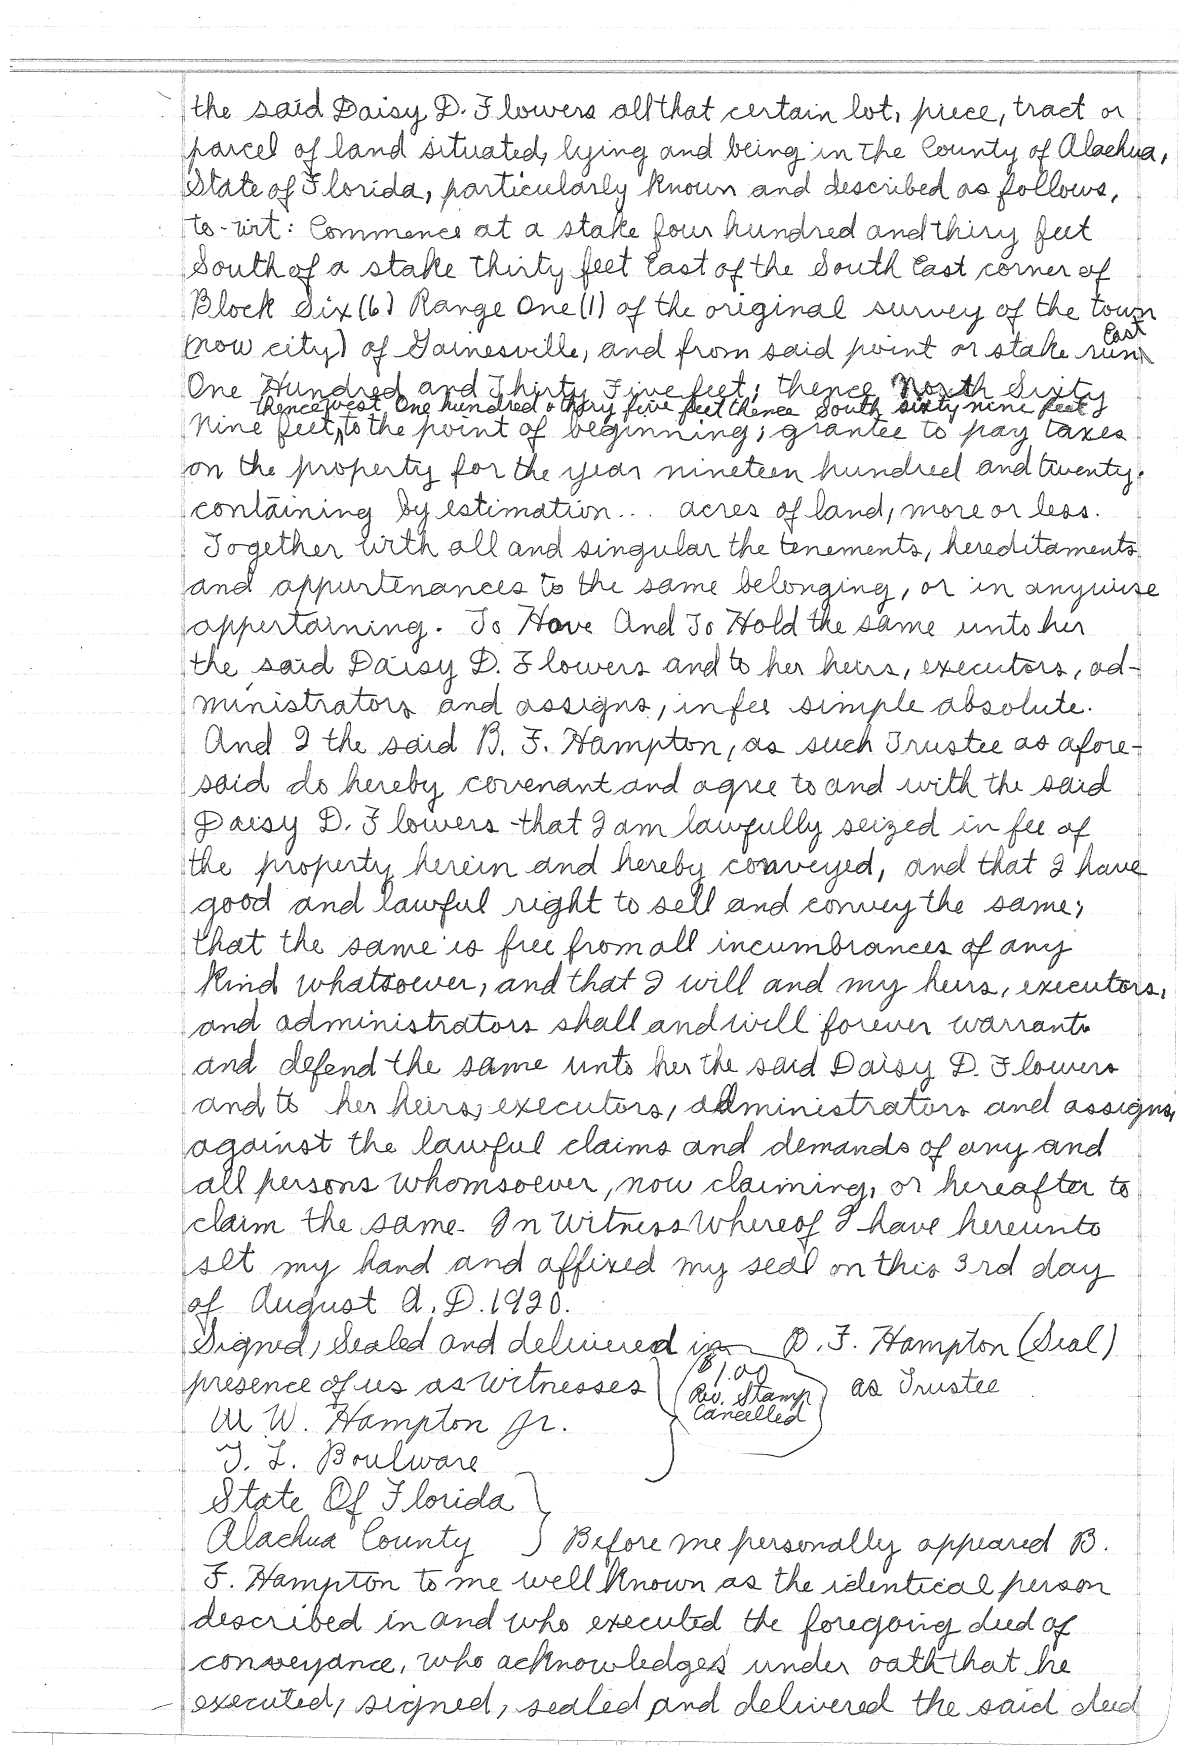 the said Daisy D. Flowers all that certain lot, piece, tract or
parcel of land situated, lying and being in the County of Alachua,
State of Florida, particularly known and described as follows,
to-wit: Commence at a stake four hundred and thiry feet
South of a stake thirty feet East of the South East corner of
Block Six (6) Range One (1) of the original survey of the town
(now city) of Gainesville, and from said point or stake run
East
One Hundred and Thirty Five feet; thence North Sixty
thence west One hundred & thiry five feet thence South sixty nine feet
Nine feet, to the point of beginning; grantee to pay taxes
on the property for the year nineteen hundred and twenty.
containing by estimation... acres of land, more or less.
Together with all and singular the tenements, hereditaments
and appurtenances to the same belonging, or in anywise
appertaining. To Have And To Hold the same unto her
the said Daisy D. Flowers and to her heirs, executors, ad-
ministrators and assigns, in fee simple absolute.
And I the said B. F. Hampton, as such Trustee as afore-
said do hereby covenant and agree to and with the said
Daisy D. Flowers that I am lawfully seized in fee of
the property herein and hereby conveyed, and that I have
good and lawful right to sell and convey the same;
that the same is free from all incumbrances of any
kind whatsoever, and that I will and my heirs, executors,
and administrators shall and will forever warrant
and defend the same unto her the said Daisy D. Flowers
and to her heirs, executors, administrators and assigns,
against the lawful claims and demands of any and
all persons whomsoever, now claiming, or hereafter to
claim the same. In Witness Whereof I have hereunto
set my hand and affixed my seal on this 3rd day
of August A.D. 1920.
Signed, Sealed and delivered in B. F. Hampton (Seal)
presence of us as witnesses $1.00 Rev. Stamp Cancelled as Trustee
W. W. Hampton Jr.
T. L. Boulware
State Of Florida
Alachua County } Before me personally appeared B.
F. Hampton to me well known as the identical person
described in and who executed the foregoing deed of
conveyance, who acknowledges under oath that he
executed, signed, sealed and delivered the said deed